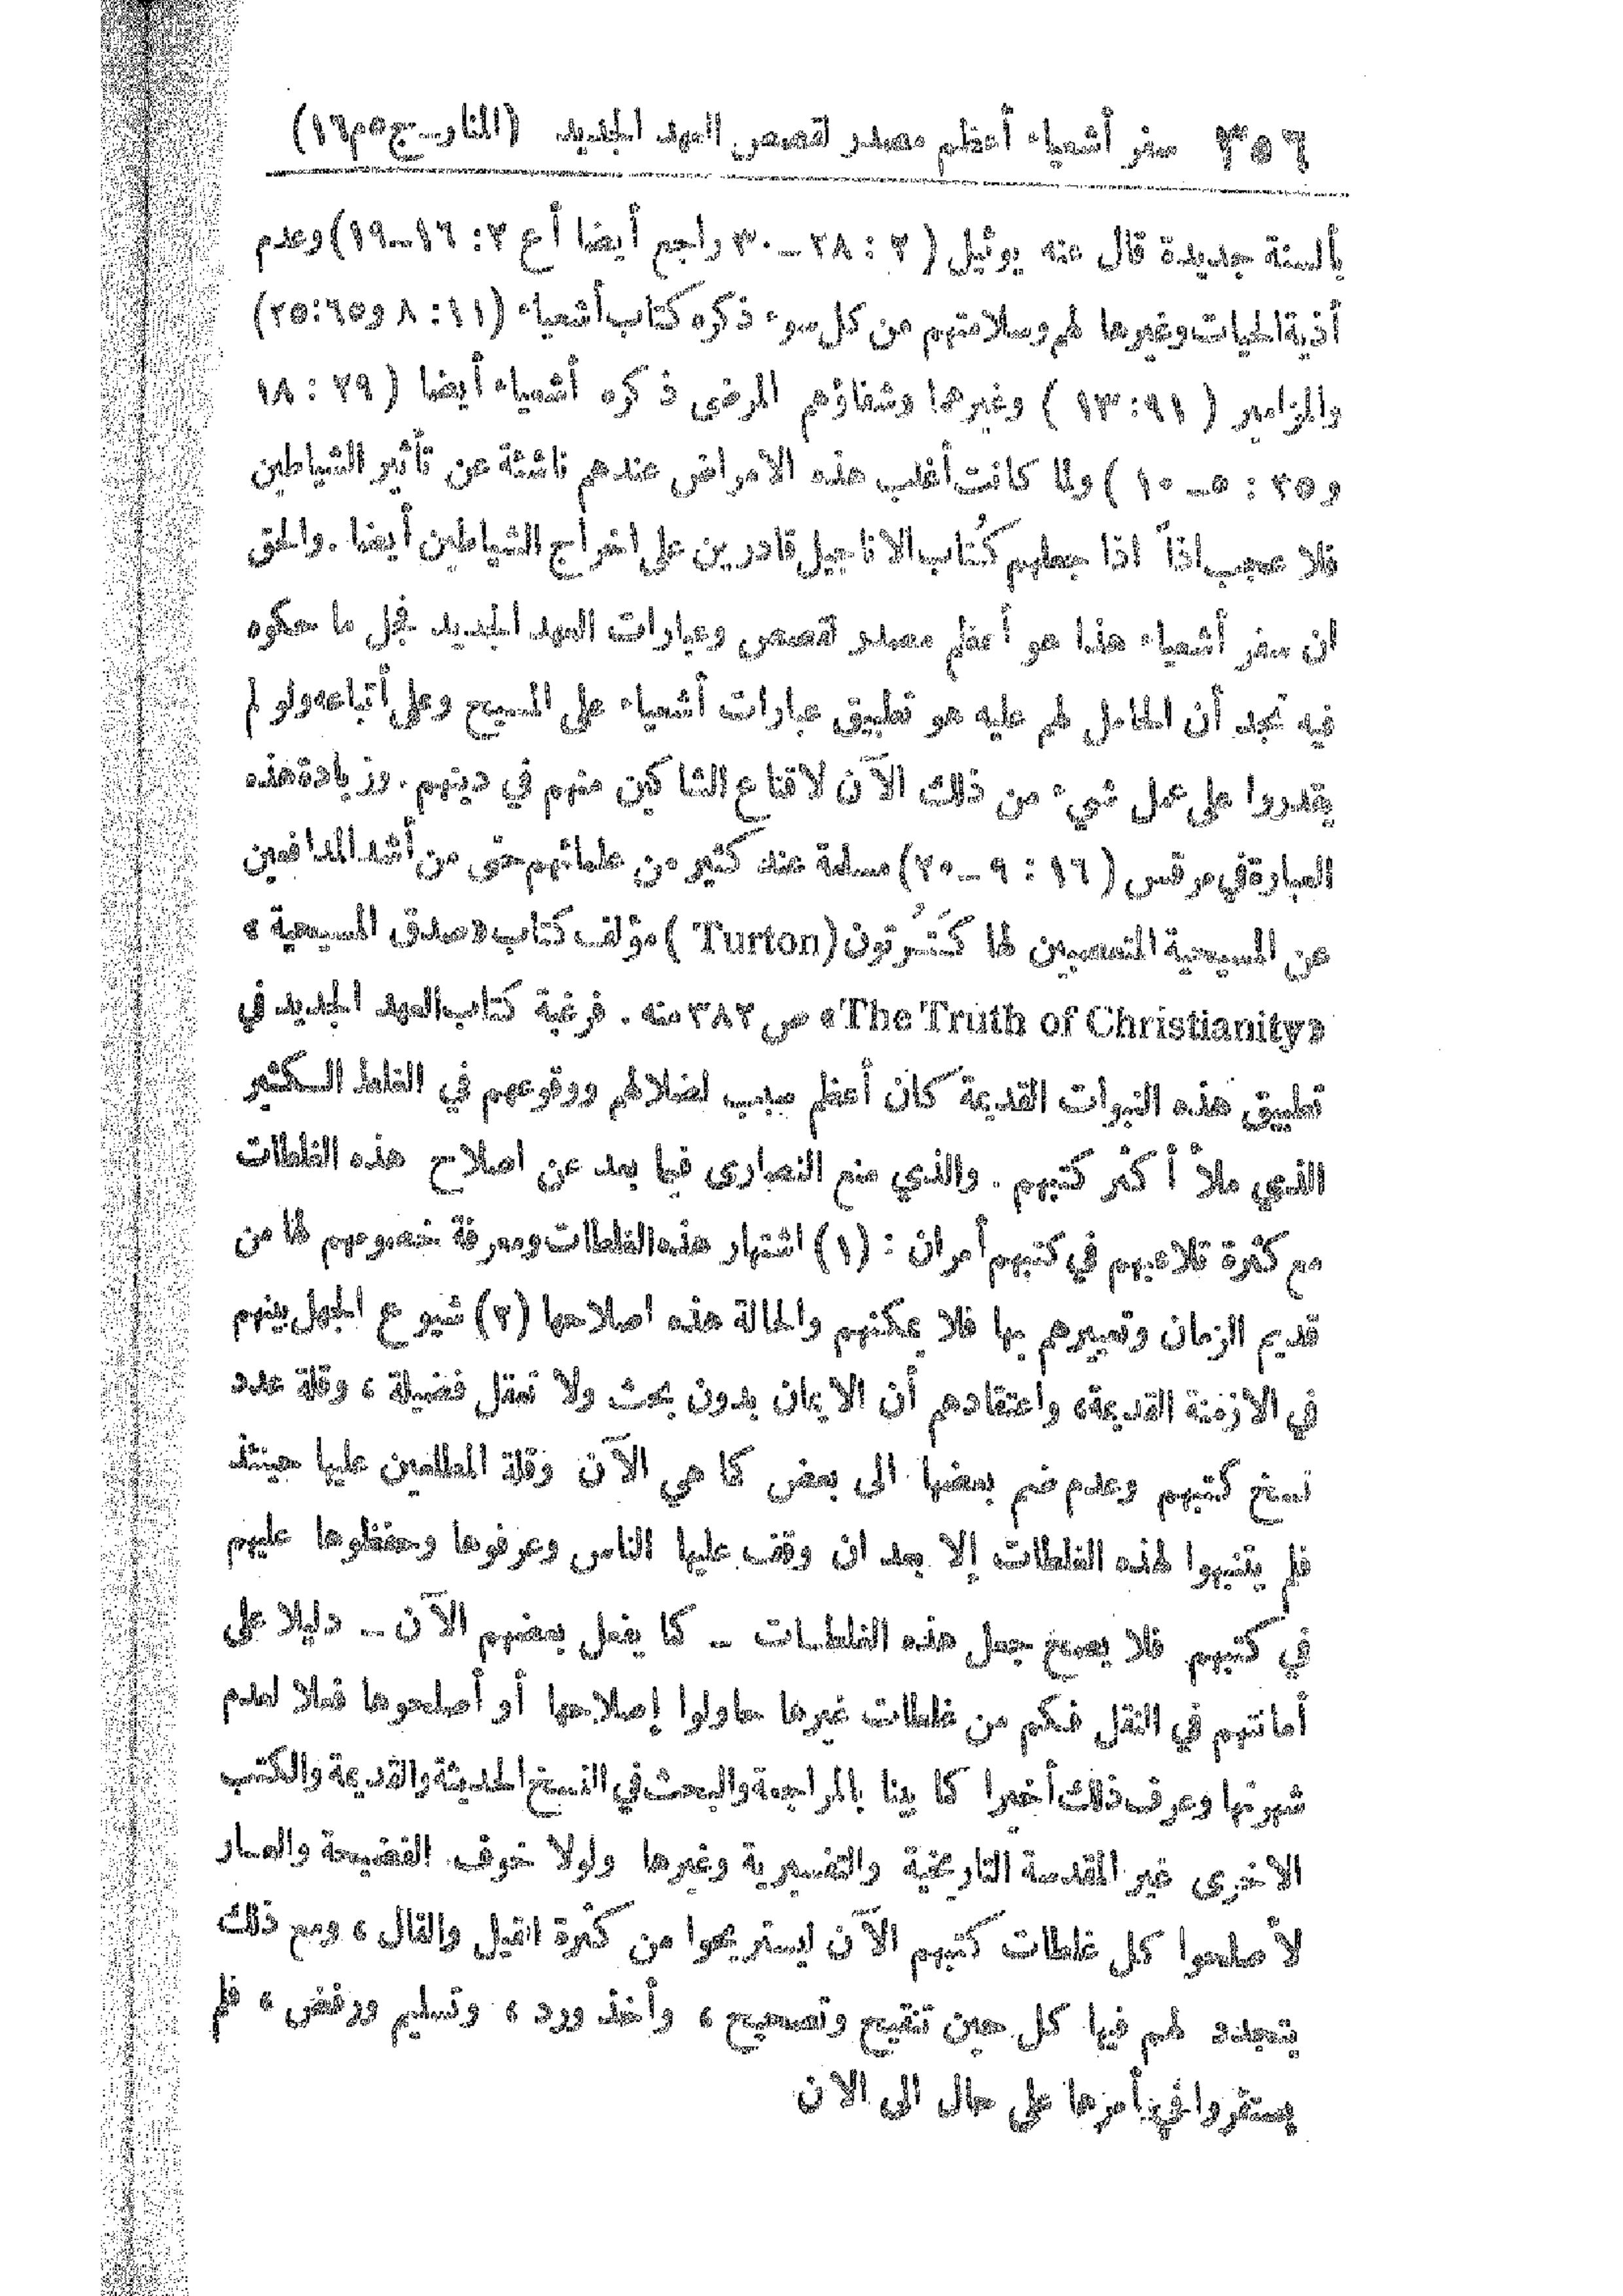 ٣٥٦ سفر أشعياء أعظم مصدر لقصص العهد الجديد (المنار ـ ج٥م١٦)
بألسنة جديدة قال عنه يوئيل (٢ : ٢٨ ـ ٣٠ راجع أيضا أع ٢ : ١٦ـ١٩) وعدم
أذية الحيات وغيرها لهم وسلامتهم من كل سوء ذكره كتاب أشعياء (١١ : ٨ و٦٥:٢٥)
والمزامير ( ٩١:١٣ ) وغيرها وشفاؤهم المرضى ذكره أشعياء أيضا (٢٩ : ١٨
و٣٥ : ٥ـ ١٠ ) ولما كانت أغلب هذه الامراض عندهم ناشئة عن تأثير الشياطين
فلا عجب اذاً اذا جعلهم كُتاب الاناجيل قادرين على اخراج الشياطين أيضا . والحق
ان سفر أشعياء هذا هو أعظم مصدر لقصص وعبارات العهد الجديد فجل ما حكوه
فيه تجد أن الحامل لهم عليه هو تطبيق عبارات أشعياء على المسيح وعلى أتباعه ولو لم
يقدروا على عمل شيء من ذلك الآن لاقناع الشاكين منهم في دينهم . وزيادة هذه
العبارة في مرقس (١٦ : ٩ ـ ٢٠) مسلمة عند كثير من علمائهم حتى من أشد المدافعين
عن المسيحية المتعصبين لها كَتُرتون (Turton ) مؤلف كتاب «صدق المسيحية »
«The Truth of Christianity» ص ٣٨٢ منه . فرغبة كتاب العهد الجديد في
تطبيق هذه النبوات القديمة كان أعظم سبب لضلالهم ووقوعهم في الغلط الكثير
الذي ملأ أكثر كتبهم . والذي منع النصارى فيما بعد عن اصلاح هذه الغلطات
مع كثرة تلاعبهم في كتبهم أمران : (١) اشتهار هذه الغلطات ومعرفة خصومهم لها من
قديم الزمان وتعييرهم بها فلا يمكنهم والحالة هذه اصلاحها (٢) شيوع الجهل بينهم
في الازمنة القديمة، واعتقادهم أن الايمان بدون بحث ولا تعقل فضيلة ، وقلة عدد
نسخ كتبهم وعدم ضم بعضها الى بعض كما هي الآن وقلة المطلعين عليها حينئذ
فلم يتنبهوا لهذه الغلطات إلا بعد ان وقف عليها الناس وعرفوها وحفظوها عليهم
في كتبهم فلا يصح جعل هذه الغلطات ـ كما يفعل بعضهم الآن ـ دليلا على
أمانتهم في النقل فكم من غلطات غيرها حاولوا إصلاحها أو أصلحوها فعلا لعدم
شهرتها وعرف ذلك أخيرا كما بينا بالمراجعة والبحث في النسخ الحديثة والقديمة والكتب
الاخرى غير المقدسة التاريخية والتفسيرية وغيرها ولولا خوف الفضيحة والعار
لأصلحوا كل غلطات كتبهم الآن ليستريحوا من كثرة القيل والقال ، ومع ذلك
يتجدد لهم فيها كل حين تنقيح وتصحيح ، وأخذ ورد ، وتسليم ورفض ، فلم
يستقروا في أمرها على حال الى الان